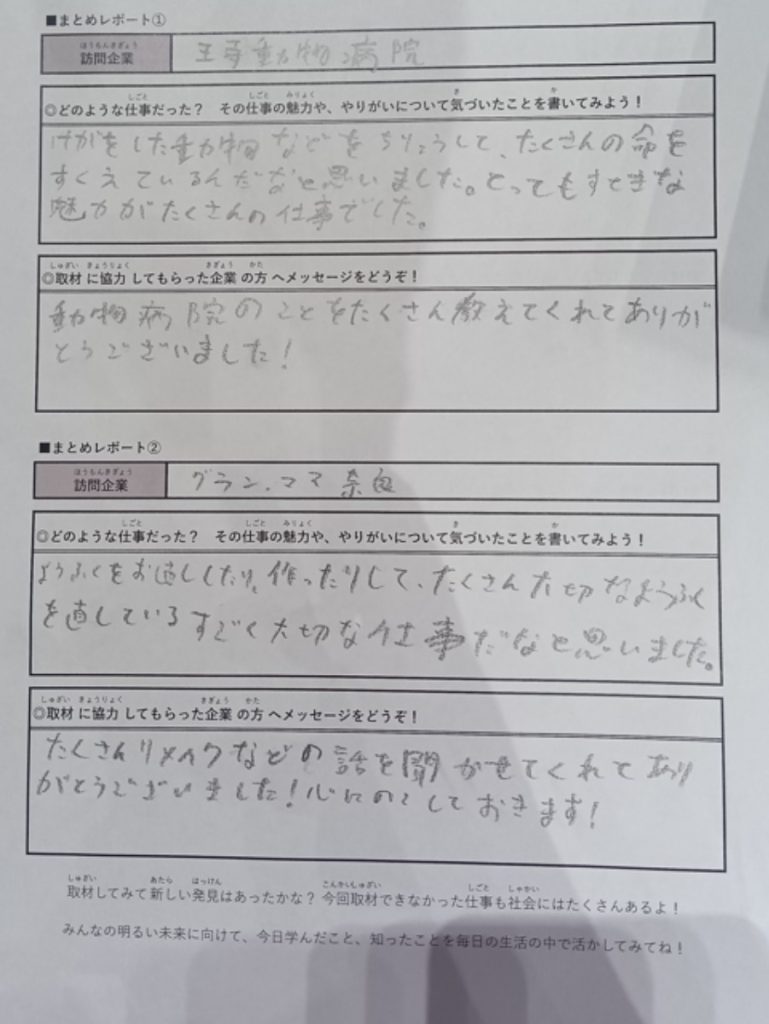 ■まとめレポート①
ほうもんきぎょう
訪問企業
王寺動物病院
しごと しごと みりょく き か
◎どのような仕事だった? その仕事の魅力や、やりがいについて気づいたことを書いてみよう!
けがをした動物などをちりょうして、たくさんの命を
すくえているんだなと思いました。とってもすてきな
魅力がたくさんの仕事でした。
しゅざい きょうりょく きぎょう かた
◎取材 に協力 してもらった企業 の方 へメッセージをどうぞ!
動物病院のことをたくさん教えてくれてありが
とうございました!
■まとめレポート②
ほうもんきぎょう
訪問企業
グラン.ママ 奈良
しごと しごと みりょく き か
◎どのような仕事だった? その仕事の魅力や、やりがいについて気づいたことを書いてみよう!
ようふくをお直ししたり、作ったりして、たくさん大切なようふく
を直しているすごく大切な仕事だなと思いました。
しゅざい きょうりょく きぎょう かた
◎取材 に協力 してもらった企業 の方 へメッセージをどうぞ!
たくさんリメイクなどの話を聞かせてくれてあり
がとうございました!心にのこしておきます!
しゅざい あたら はっけん こんかいしゅざい しごと しゃかい
取材してみて新しい発見はあったかな? 今回取材できなかった仕事も社会にはたくさんあるよ!
みんなの明るい未来に向けて、今日学んだこと、知ったことを毎日の生活の中で活かしてみてね!